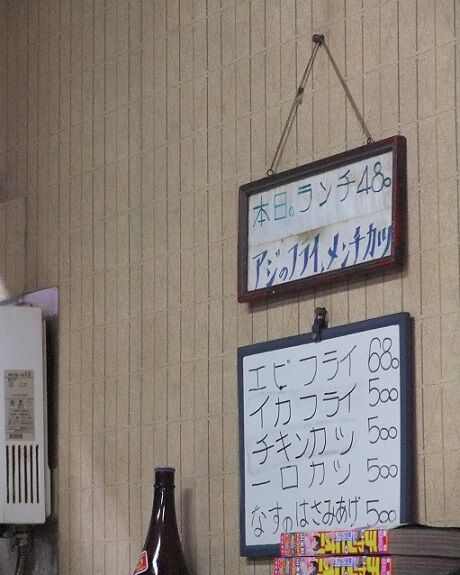 本日。ランチ480
アジのフライ、メンチカツ
エビフライ 680
イカフライ 500
チキンカツ 500
一口カツ 500
なすのはさみあげ 500